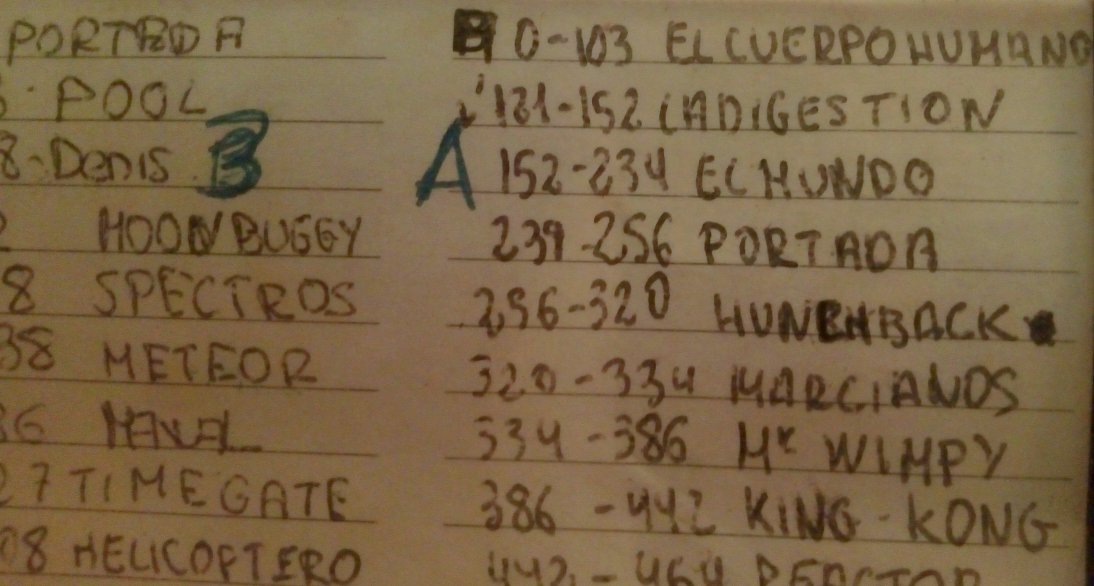 PORTADA
POOL
8-Denis B
MOON BUGGY
8 SPECTROS
38 METEOR
36
27 TIME GATE
08 HELICOPTERO
0-103 EL CUERPO HUMANO
121-152 LA DIGESTION
A 152-234 EL MUNDO
239-256 PORTADA
256-320 HUNCHBACK
320-334 MARCIANOS
334-386 Mr WIMPY
386-442 KING-KONG
442-464 REACTOR